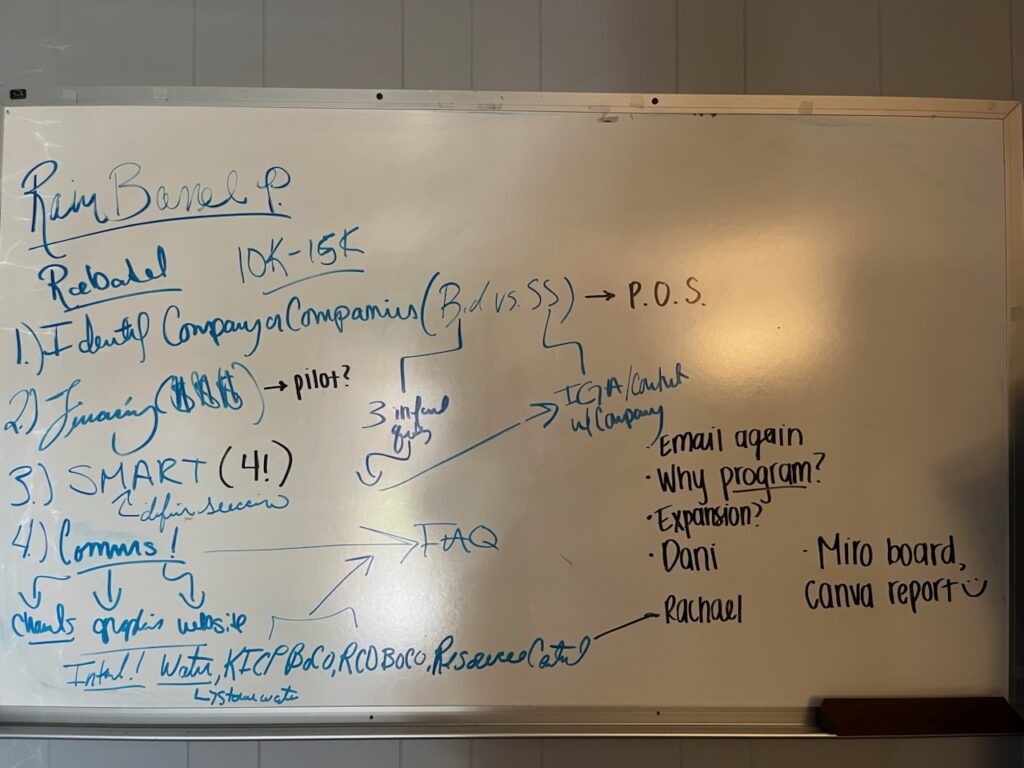 Rain Barrel P.
Rebate! 10K-15K
1.) Identify Company or Companies (Bid vs. SS) → P.O.S.
2.) Financing ($$$) → pilot?
3 informal
IGA/Contract
w/ Company
3.) SMART (4!)
define success
4.) Comms! → FAQ
channels graphics website
Internal! Water, KICP BoCo, RCD BoCo, Resource Central
↳ stormwater
· Email again
· Why program?
· Expansion?
· Dani
- Rachael
· Miro board,
Canva report